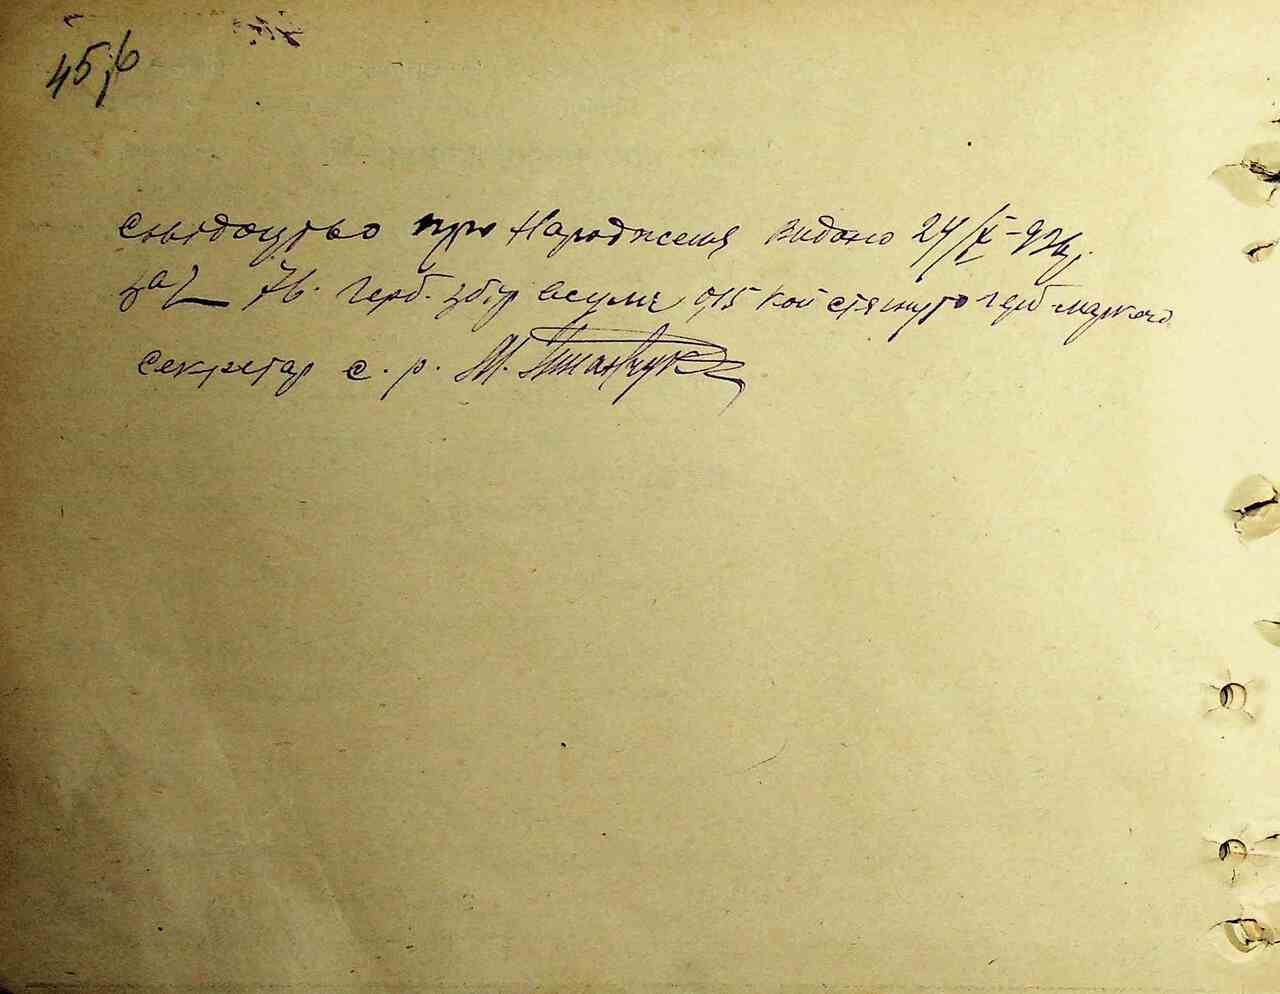 45
Свідоцтво про Народження видано 24/X-
за 76. герб. збір в сумі 015 коп стягнуто герб-маркою
секретар с. р.